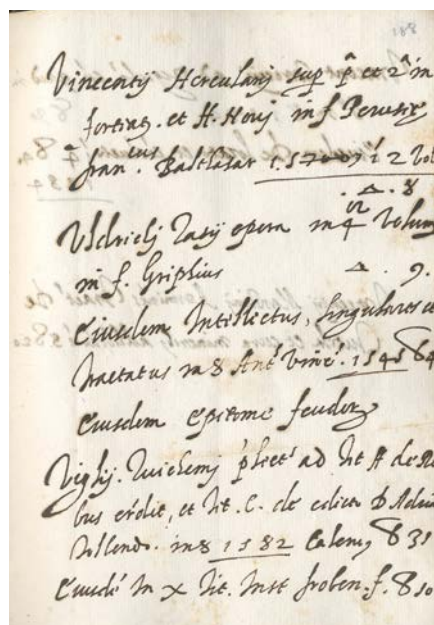 188
Vincentij Herculanj sup p et 2 in
fortiat. et ff. Novj in f Perusie
fran.cus Balthasar 1.5 12 Vol
. Δ . 8
Uldricij Zasij opera in 4 Volum
in f. Griphius Δ . 9.
Eiusdem Intellectus, singulares et
tractatus in 8 Ant Vinc. 1545 64
Eiusdem Epitome feudor
Viglij. Zuichemj ad tit ff de
bus et tit. C. de edicto D
tollendo. in 8 1582 Calenj 8 31
Eiusde In X tit. Inst froben. f. 8 10